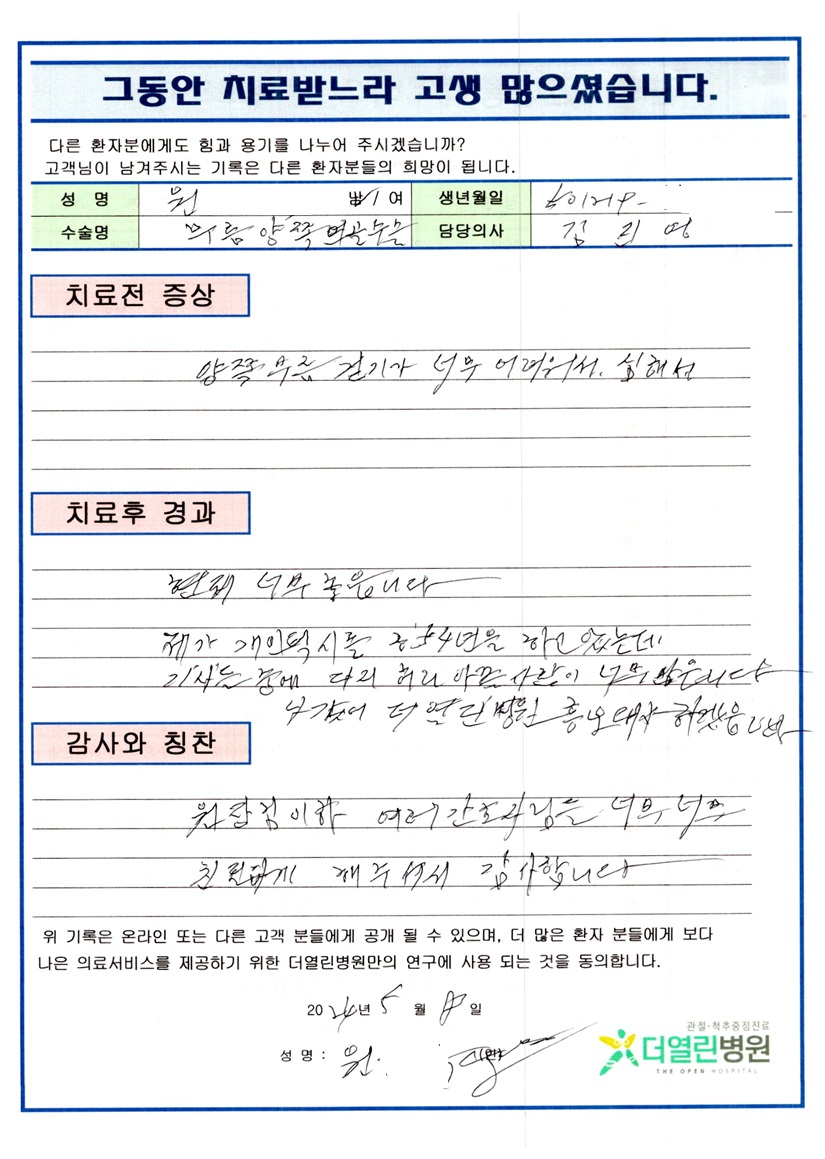 그동안 치료받느라 고생 많으셨습니다.
다른 환자분에게도 힘과 용기를 나누어 주시겠습니까?
고객님이 남겨주시는 기록은 다른 환자분들의 희망이 됩니다.
성 명 원 남/여 생년월일
수술명 무릎 양쪽 담당의사 김
치료전 증상
양쪽 무릎 걷기가 너무 어려워서.
치료후 경과
현재 너무 좋읍니다
제가 개인택시를 54년을 하고 있는데
기사들 중에 다리 허리 아픈 사람이 너무 많읍니다
더 열린병원 홍보대사 하겠읍니다
감사와 칭찬
원장님이하 여러 간호사님들 너무 너무
친절하게 해주셔서 감사합니다
위 기록은 온라인 또는 다른 고객 분들에게 공개 될 수 있으며, 더 많은 환자 분들에게 보다
나은 의료서비스를 제공하기 위한 더열린병원만의 연구에 사용 되는 것을 동의합니다.
2024년 5 월 8 일
성 명 : 원
관절·척추중점진료
더열린병원
THE OPEN HOSPITAL